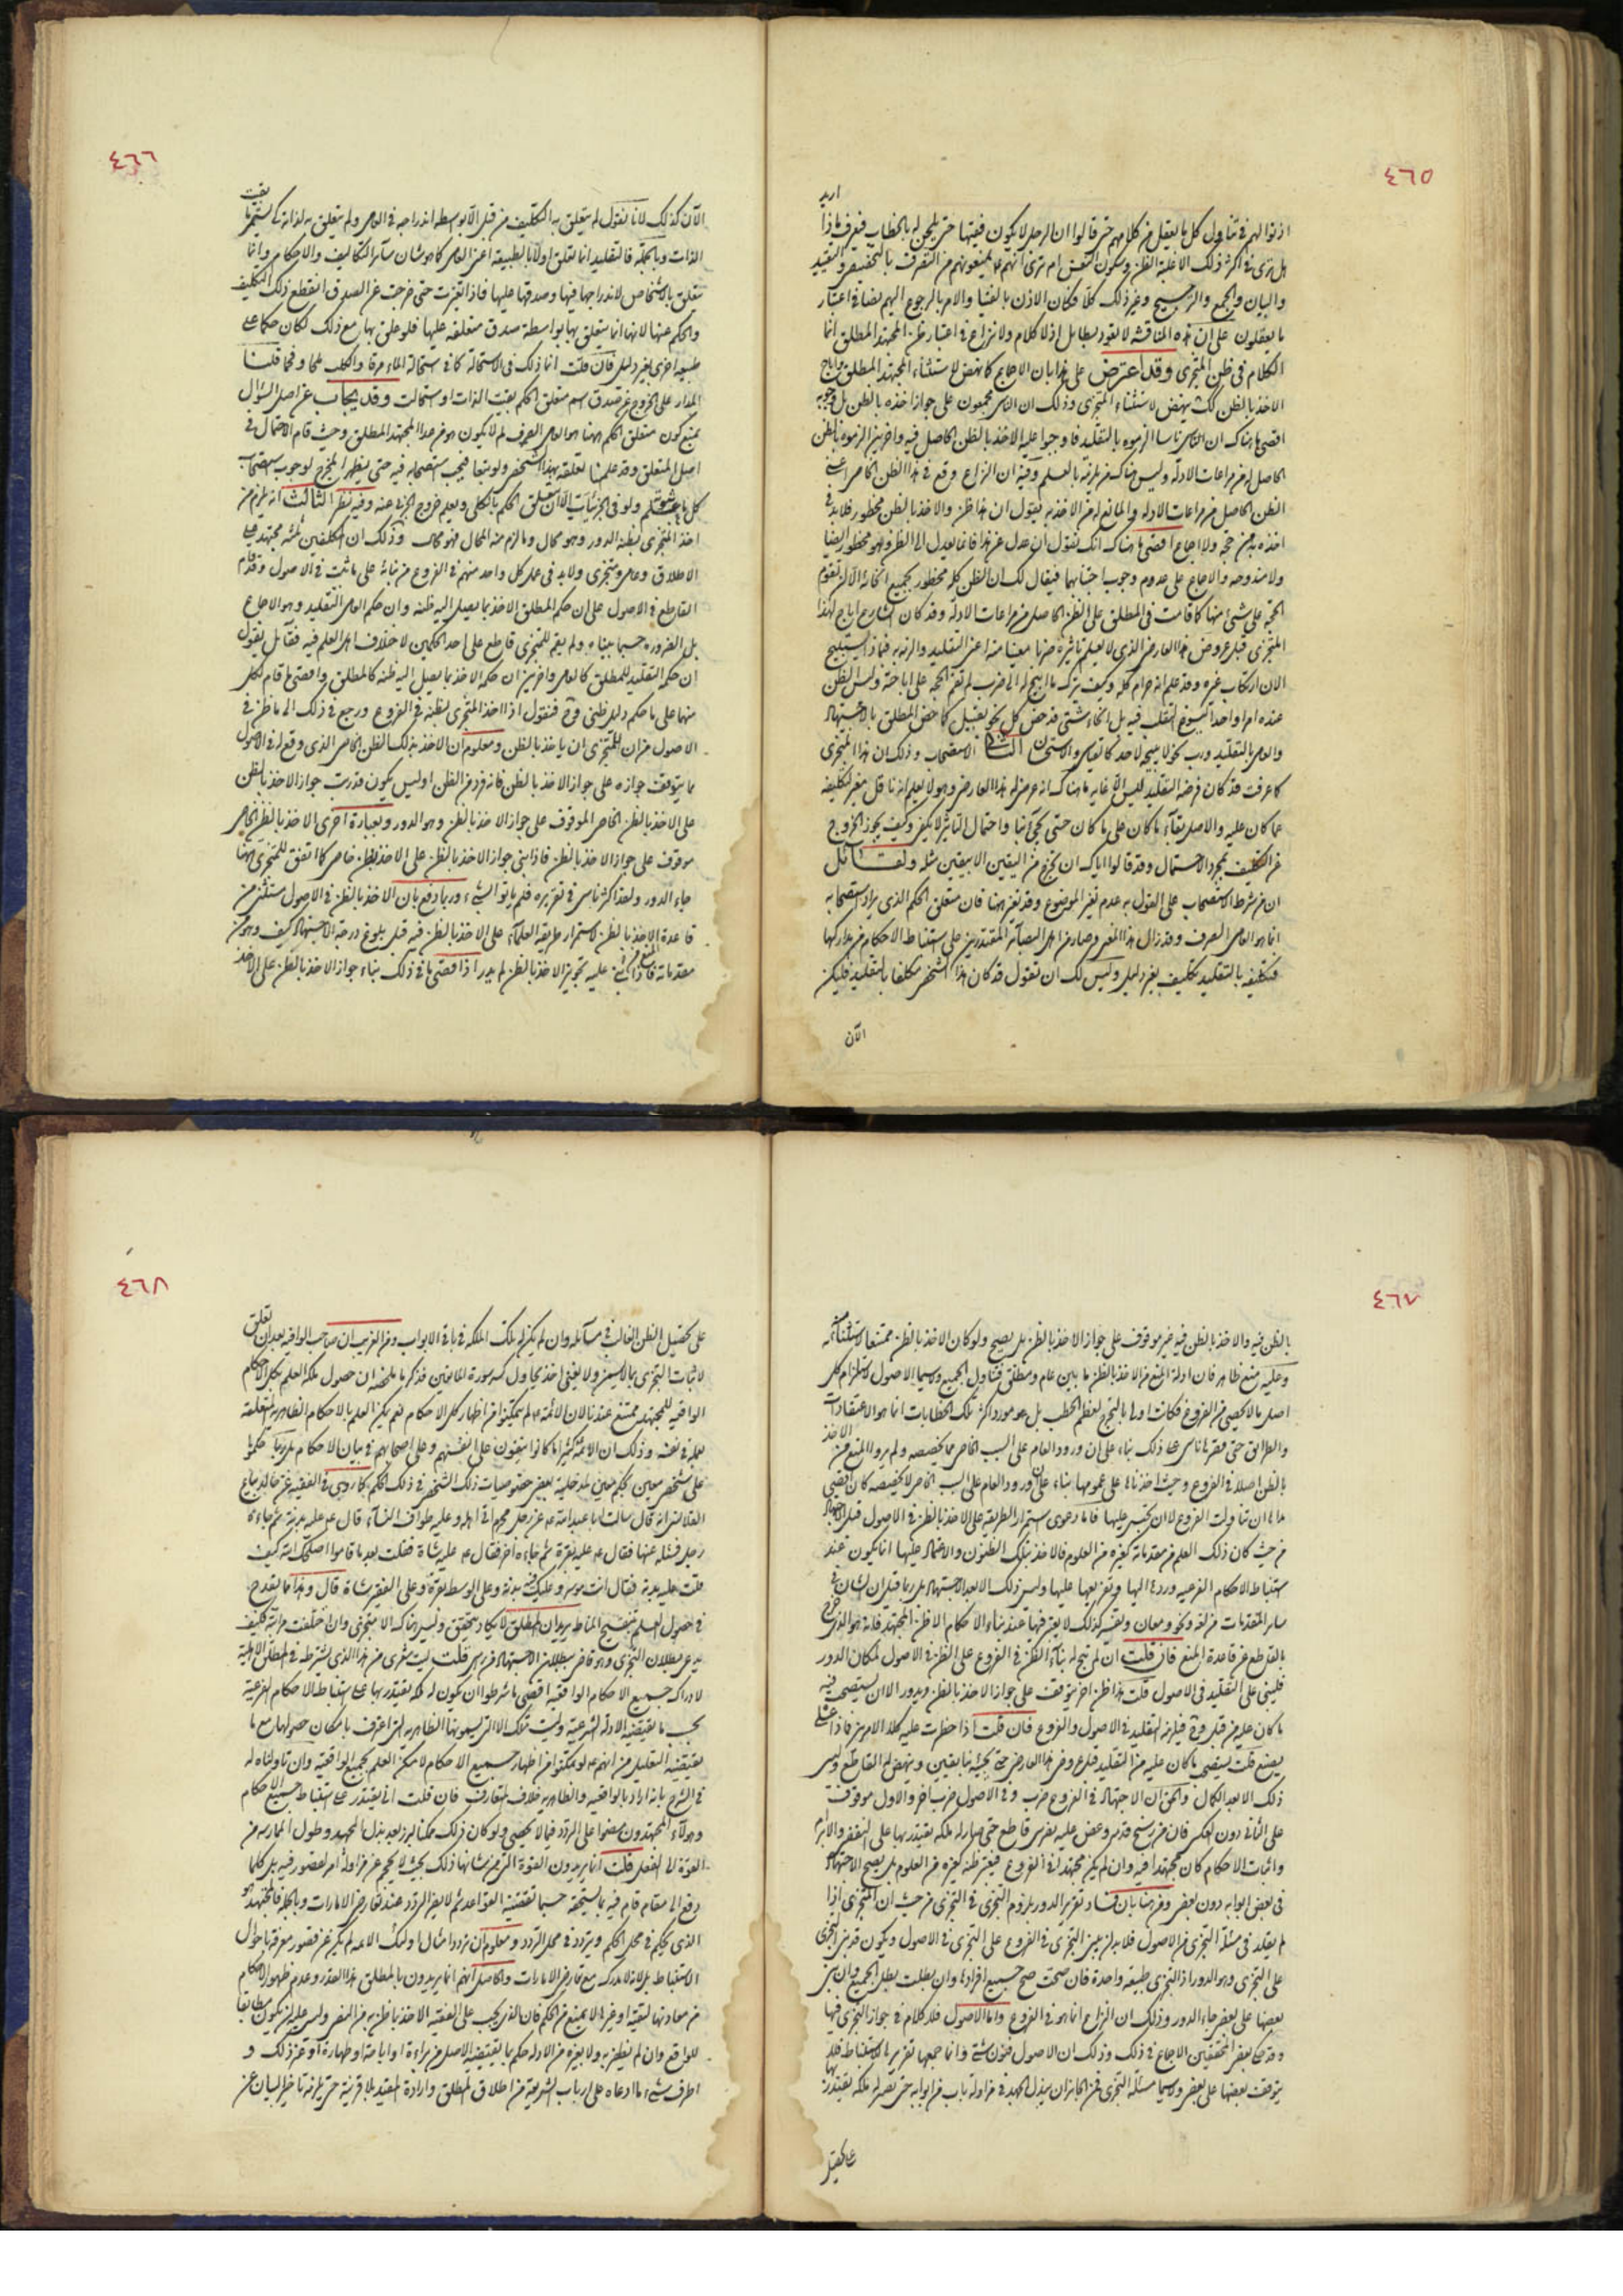 ٤٦٥
اريد
اذنوا لهم في تناول كل ما يعقل من كلامهم حتى قالوا ان الرجل لا يكون فقيها حتى يلحن له بالخطاب فيعرف ماذا
هل ترى في اكثر ذلك الا غلبة الظن وسكون النفس ام ترى انهم لم يمنعونهم من التصرف بالتخصيص والتقييد
والبيان والجمع والترجيح وغير ذلك كلا فكان الاذن بالفتيا والامر بالرجوع اليهم نصا في اعتبار
ما يعقلون على ان هذه المناقشة لا تعود بطائل اذ لا كلام ولا نزاع في اعتبار ظن المجتهد المطلق انما
الكلام في ظن المتجزي وقد اعترض على هذا بان الاجماع كما نهض لاستثناء المجتهد المطلق واباح
الاخذ بالظن كذلك ينهض لاستثناء المتجزي وذلك ان الناس مجمعون على جواز اخذه بالظن بل وجوبه
اقصى ما هناك ان اناسا الزموه بالتقليد فاوجبوا عليه الاخذ بالظن الحاصل فيه واخرين الزموه بالظن
الحاصل له من مراعات الادلة وليس هناك من يلزمه بالعلم وفيه ان النزاع وقع في هذا الظن الخاص اعني
الظن الحاصل من مراعات الادلة والمانع له من الاخذ به يقول ان هذا ظن والاخذ بالظن محظور فلا بد في
اخذه به من حجة ولا اجماع اقصى ما هناك انك تقول ان عدل عن هذا فانما يعدل الى الظن وهو محظور ايضا
ولا مندوحة والاجماع على عدم وجوب اجتنابهما فيقال لك ان الظن كله محظور بجميع انحائه الا ان تقوم
الحجة على شئ منها كما قامت في المطلق على الظن الحاصل من مراعات الادلة وقد كان الشارع اباح لهذا
المتجزي قبل عروض هذا العارض الذي لا يعلم تاثيره ضربا معينا منه اعني التقليد والزمه به فماذا يستبيح
الان ارتكاب غيره وقد علم انه حرام كله وكيف يترك ما ابيح له الى ضرب لم تقم الحجة على اباحته وليس الظن
عنده امرا واحدا يسوغ التقلب فيه بل انحاء شتى قد خص كل نحو بقبيل كما خص المطلق بالاجتهاد
والعامي بالتقليد ورب نحو لا يبيحه لاحد كالقياس والاستحسان الثاني الاستصحاب وذلك ان هذا المتجزي
كما عرفت قد كان فرضه التقليد ليس الا غاية ما هناك انه عرض له هذا العارض وهو لا يعلم انه ناقل مغير لتكليفه
عما كان عليه والاصل بقاء ما كان على ما كان حتى يجئ نبا واحتمال التاثير لا يكفي وكيف يجوز الخروج
عن التكليف بمجرد الاحتمال وقد قالوا اياك ان تخرج من اليقين الا بيقين مثله ولقائل
ان من شرط الاستصحاب على القول به عدم تغير الموضوع وقد تغير ههنا فان متعلق الحكم الذي يراد استصحابه
انما هو العامي الصرف وقد زال هذا المعنى وصار من اهل البصائر المقتدرين على استنباط الاحكام من مداركها
فتكليفه بالتقليد تكليف بغير دليل وليس لك ان تقول قد كان هذا الشخص مكلفا بالتقليد فليكن
الآن
٤٦٦
الآن كذلك لانا نقول لم يتعلق به التكليف من قبل الا بواسطة اندراجه في العامي ولم يتعلق به لذاته كي يستمر ما بقيت
الذات وبالجملة فالتقليد انما تعلق اولا بالطبيعة اعني العامي كما هو شان سائر التكاليف والاحكام وانما
يتعلق بالاشخاص لاندراجها فيها وصدقها عليها فاذا تغيرت حتى خرجت عن الصدق انقطع ذلك التكليف
والحكم عنها لانها انما يتعلق بها بواسطة صدق متعلقه عليها فلو علق بها مع ذلك لكان حكما على
طبيعة اخرى بغير دليل فان قلت انما ذلك في الاستحالة كما في استحالة الماء مرقا والكلب ملحا وفيما قلت
المدار على الخروج عن صدق اسم متعلق الحكم بقيت الذات او استحالت وقد يجاب عن اصل السؤال
بمنع كون متعلق الحكم ههنا هو العامي الصرف لم لا يكون هو من عدا المجتهد المطلق وحيث قام الاحتمال في
اصل المتعلق وقد علمنا تعلقه بهذا الشخص ولو تبعا فيجب استصحابه فيه حتى يظهر المخرج لوجوب استصحاب
كل ما ثبت وعلم ولو في الجزئيات الا ان يتعلق الحكم بالكلي ويعلم خروج الجزئي عنه وفيه نظر الثالث انه يلزم من
اخذ المتجزي بظنه الدور وهو محال وما لزم منه المحال فهو محال وذلك ان المكلفين ثلثة مجتهد على
الاطلاق وعامي ومتجزي ولا بد في عمل كل واحد منهم في الفروع من بنائه على ما ثبت في الاصول وقد قام
القاطع في الاصول على ان حكم المطلق الاخذ بما يصل اليه ظنه وان حكم العامي التقليد وهو الاجماع
بل الضرورة حسبما بيناه ولم يقم للمتجزي قاطع على احد الحكمين لاختلاف اهل العلم فيه فقائل يقول
ان حكمه التقليد للمطلق كالعامي واخرين ان حكمه الاخذ بما يصل اليه ظنه كالمطلق واقصى ما قام لكل
منهما على ما حكم دليل ظني وح فنقول اذا اخذ المتجزي بظنه في الفروع ورجع في ذلك الى ما ظن في
الاصول من ان للمتجزي ان ياخذ بالظن ومعلوم ان الاخذ بذلك الظن الخاص الذي وقع له في الاصول
مما يتوقف جوازه على جواز الاخذ بالظن فانه فرد من الظن اوليس يكون قد رتب جواز الاخذ بالظن
على الاخذ بالظن الخاص الموقوف على جواز الاخذ بالظن وهو الدور وبعبارة اخرى الاخذ بالظن الخاص
موقوف على جواز الاخذ بالظن فاذا بني جواز الاخذ بالظن على الاخذ بظن خاص كما اتفق للمتجزي ههنا
جاء الدور ولقد اكثر الناس في تقريره فلم ياتوا بشئ وربما دفع بان الاخذ بالظن في الاصول مستثنى من
قاعدة الاخذ بالظن لاستمرار طريقة العلماء على الاخذ بالظن فيه قبل بلوغ درجة الاجتهاد كيف وهو من
مقدماته فاذا بني عليه تجويز الاخذ بالظن لم يدر اذ اقصى ما في ذلك بناء جواز الاخذ بالظن على الاخذ
٤٦٧
بالظن فيه والاخذ بالظن فيه غير موقوف على جواز الاخذ بالظن بل يصح ولو كان الاخذ بالظن ممتنعا لاستثنائه
وعليه منع ظاهر فان ادلة المنع من الاخذ بالظن ما بين عام ومطلق فتناول الجميع ولا سيما الاصول لاستلزام كل
اصل ما لا يحصى من الفروع فكانت اولى بالتحريم لعظم الخطب بل هو مورد اكثر تلك الخطابات انما هو الاعتقادات
والطرائق حتى قصرها ناس على ذلك بناء على ان ورود العام على السبب الخاص مما يخصصه ولم يروا المنع من الاخذ
بالظن اصلا في الفروع وحيث اخذناها على عمومها بناء على ان ورود العام على السبب الخاص لا يخصصه كان اقصى
ما هنا ان تناولت الفروع لا ان تختص عليها فاما دعوى استمرار الطريقة على الاخذ بالظن في الاصول قبل الاجتهاد
من حيث كان ذلك العلم من مقدماته كغيره من العلوم فالاخذ بتلك الظنون والاعتماد عليها انما يكون عند
استنباط الاحكام الفرعية وردها اليها وتفريعها عليها وليس ذلك الا بعد الاجتهاد بل ربما قيل ان الشان في
سائر المقدمات من لغة ونحو ومعان وتفسير كذلك لا يعتبر فيها عند بناء الاحكام الا ظن المجتهد فانه هو الذي خرج
بالقطع عن قاعدة المنع فان قلت ان لم يتجه له بناء الظن في الفروع على الظن في الاصول لمكان الدور
فليبن على التقليد في الاصول قلت هذا ظن اخر يتوقف على جواز الاخذ بالظن ويدور الا ان يستصحب فيه
ما كان عليه من قبل وح فيلزمه التقليد في الاصول والفروع فان قلت اذا حظرت عليه كلا الامرين فماذا عسى
يصنع قلت يستصحب ما كان عليه من التقليد قبل عروض هذا العارض حتى يجئه نبا بيقين وينهض له القاطع وليس
ذلك الا بعد الكمال والحق ان الاجتهاد في الفروع ضرب وفي الاصول ضرب اخر والاول موقوف
على الثاني دون العكس فان من رسخ قدمه وعض عليه بضرس قاطع حتى صار له ملكة يقتدر بها على النقض والابرام
واثبات الاحكام كان مجتهدا فيه وان لم يكن مجتهدا في الفروع فيعتبر ظنه كغيره من العلوم بل يصح الاجتهاد
في بعض ابوابه دون بعض ومن هنا بان فساد تقرير الدور بلزوم التجزي في التجزي من حيث ان المتجزي اذا
لم يقلد في مسئلة التجزي من الاصول فلا بد ان يبني التجزي في الفروع على التجزي في الاصول ويكون قد بنى التجزي
على التجزي وهو الدور اذ التجزي طبيعة واحدة فان صحت صح جميع افرادها وان بطلت بطل الجميع وان بني
بعضها على بعض جاء الدور وذلك ان النزاع انما هو في الفروع واما الاصول فلا كلام في جواز التجزي فيها
وقد حكى بعض المحققين الاجماع في ذلك وذلك ان الاصول فنون شتى وانما جمعها تقرير الاستنباط فلا
يتوقف بعضها على بعض ولا سيما مسئلة التجزي فمن الجائز ان يبذل الجهد في مزاولة باب من ابوابه حتى تصير له ملكة يقتدر بها
على تحصيل
٤٦٨
على تحصيل الظن الغالب في مسائله وان لم يكن له تلك الملكة في باقي الابواب ومن الغريب ان صاحب الوافية بعد ان تعلق
لاثبات التجزي بما لا يسمن ولا يغني اخذ يحاول كسر سورة المانعين فذكر ما ملخصه ان حصول ملكة العلم بكل الاحكام
الواقعية للمجتهد ممتنع عندنا لان الائمة ع لم يتمكنوا من اظهار كل الاحكام نعم يمكن العلم بالاحكام الظاهرية المتعلقة
بعمله في نفسه وذلك ان الائمة كثيرا ما كانوا يتقون على انفسهم وعلى اصحابهم في بيان الاحكام بل ربما حكموا
على شخص معين بحكم معين لمدخلية بعض خصوصيات ذلك الشخص في ذلك الحكم كما روي في الفقيه عن خالد بياع
القلانس انه قال سالت ابا عبد الله ع عن رجل محرم اتى اهله وعليه طواف النساء قال ع عليه بدنة ثم جاءه
رجل فسئله عنها فقال ع عليه بقرة ثم جاءه اخر فقال ع عليه شاة فقلت بعد ما قاموا اصلحك الله كيف
قلت عليه بدنة فقال انت موسر وعليك بدنة وعلى الوسط بقرة وعلى الفقير شاة قال وهذا مما يقدح
في حصول العلم بتنقيح المناط يريد ان المطلق لا يكاد يتحقق وليس هناك الا متجزي وان اختلفت مراتبه فكيف
يدعى بطلان التجزي وهو قاض ببطلان الاجتهاد من راس قلت ليت شعري من هذا الذي يشترط في المطلق الاحاطة
لادراك جميع الاحكام الواقعية اقصى ما شرطوا ان يكون له ملكة يقتدر بها على استنباط الاحكام الفرعية
بحسب ما يقتضيه الادلة الشرعية وليست تلك الا التي يسمونها الظاهرية التي اعترف بامكان حصولها مع ما
يقتضيه التعليل من انهم ع لو تمكنوا من اظهار جميع الاحكام لامكن العلم بجميع الواقعية وان تاولناه له
في الشرح بانه اراد بالواقعية والظاهرية خلاف المتعارف فان قلت انى يقتدر على استنباط جميع الاحكام
وهؤلاء المجتهدون مضوا على التردد فيما لا يحصى ولو كان ذلك ممكنا لبرز بعد بذل الجهد وطول الممارسة من
القوة الى الفعل قلت انما يريدون القوة التي من شانها ذلك بحيث لا يحجم عن مزاولة امر لقصور فيه بل كلما
دفع الى مقام قام فيه بما يستحقه حسبما تقتضيه القواعد ثم لا يضر التردد عند تعارض الامارات وبالجملة فالمجتهد هو
الذي يحكم في محل الحكم ويتردد في محل التردد ومعلوم ان تردد امثال اولئك الائمة لم يكن عن قصور معرفتهم باحوال
الاستنباط بل لانه لا مدرك مع تعارض الامارات والحاصل انهم انما يريدون بالمطلق هذا القدر وعدم ظهور الاحكام
من معادنها لتقية او غيرها لا يمنع من الحكم فان الذي يجب على الفقيه الاخذ بما ظن به من النص وليس عليه ان يكون مطابقا
للواقع وان لم يظفر به ولا بغيره من الادلة حكم بما يقتضيه الاصل من براءة او اباحة او طهارة او غير ذلك و
اطرف شئ ما ادعاه على ارباب الشريعة من اطلاق المطلق وارادة المقيد بلا قرينة حتى يلزمه تاخير البيان عن